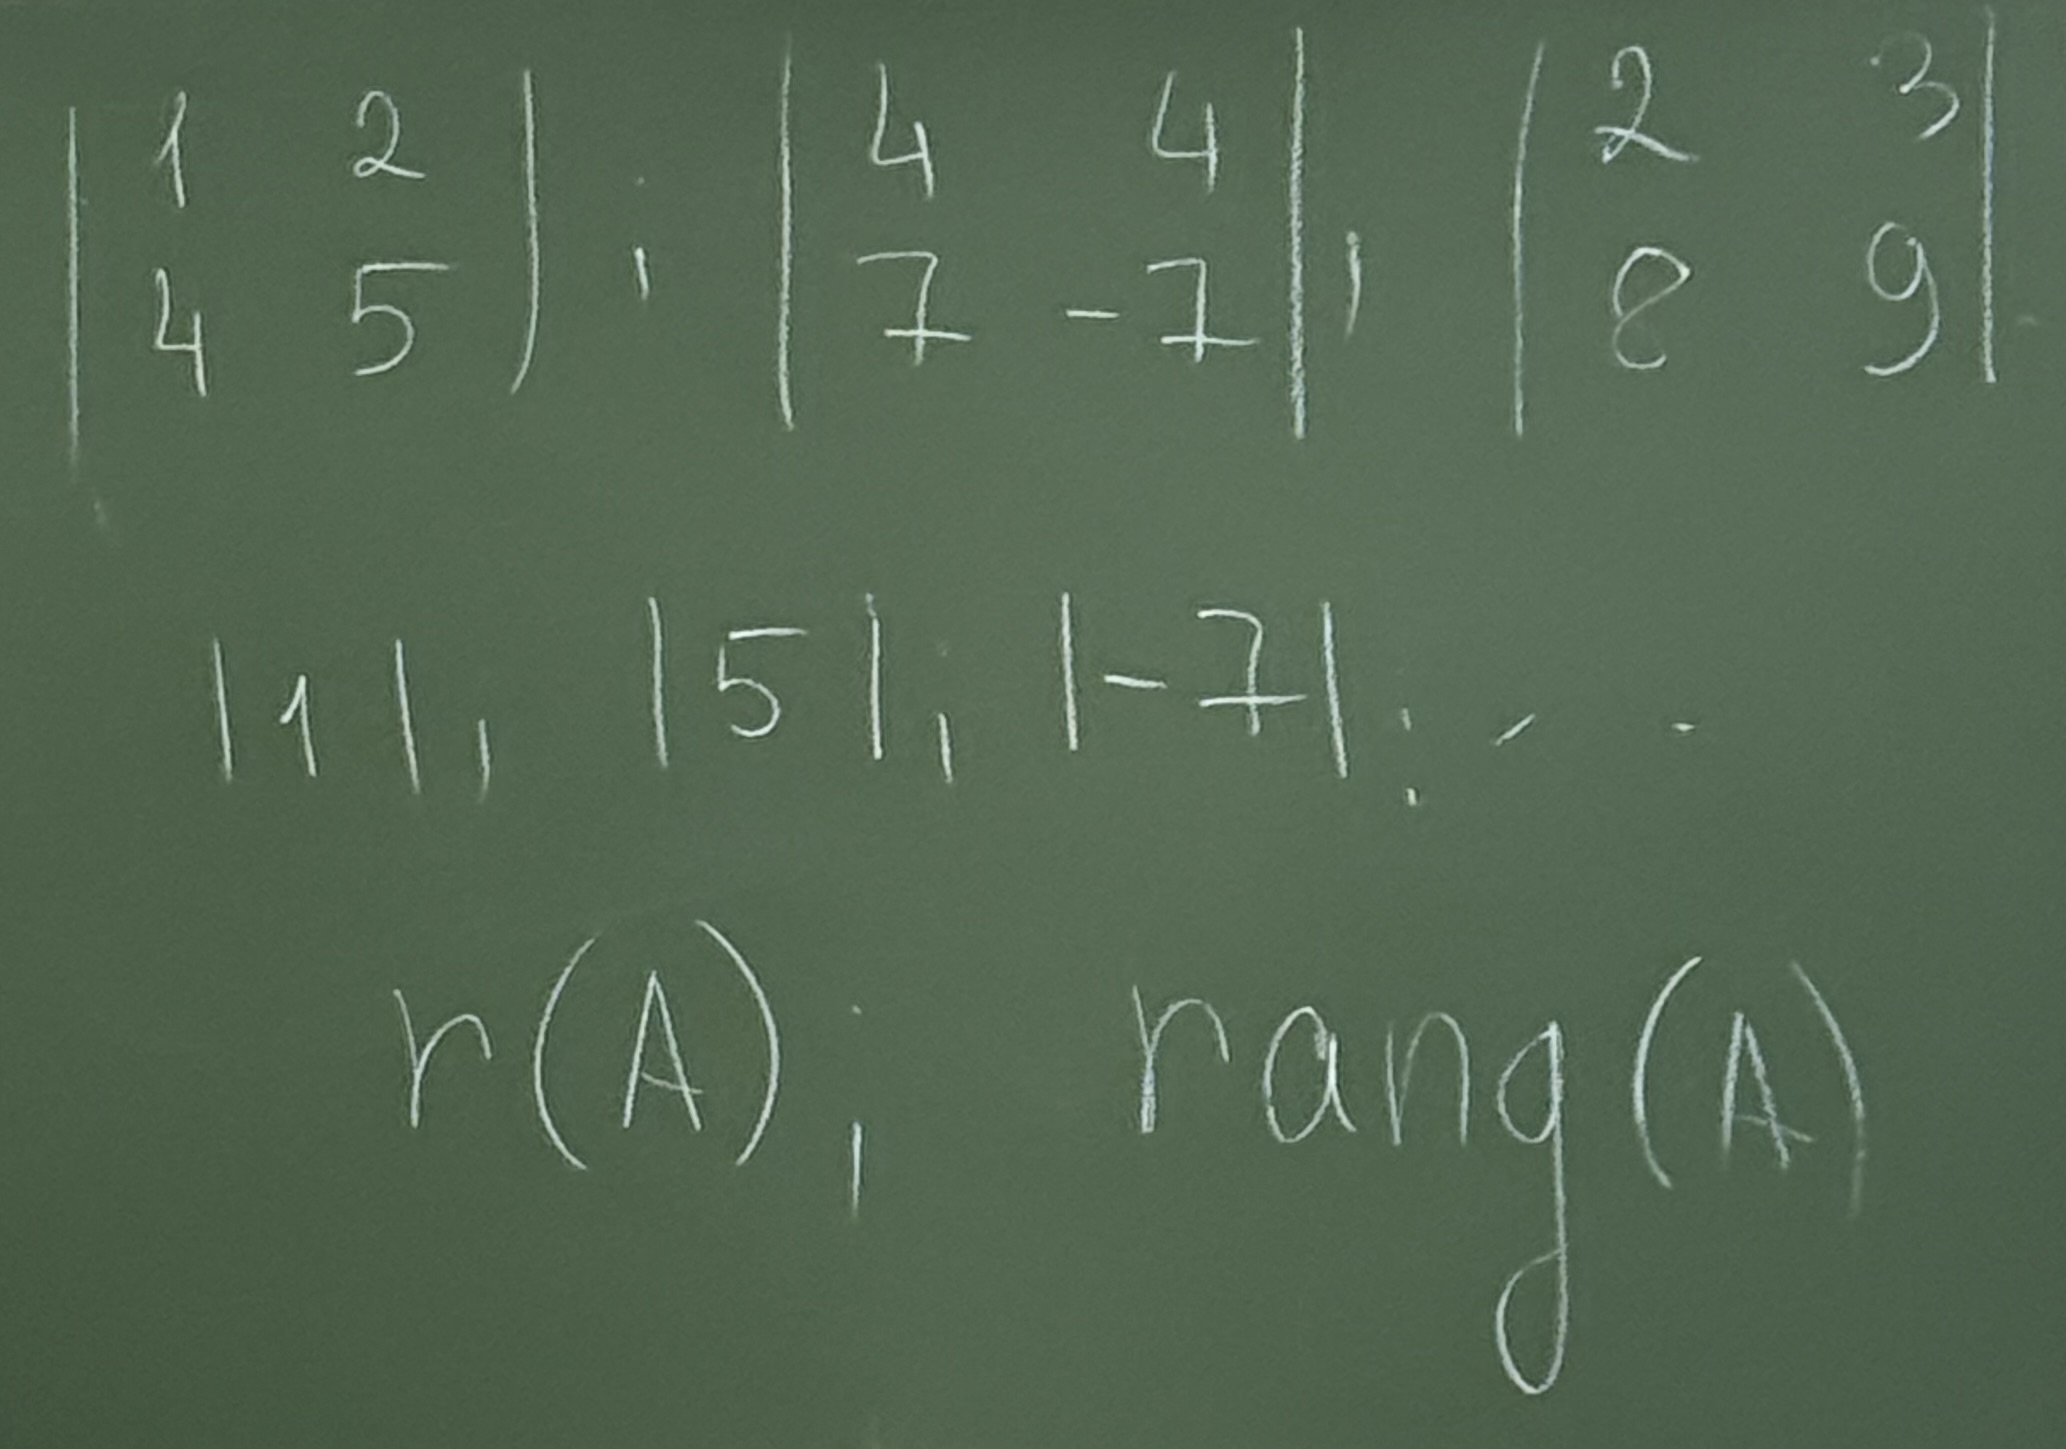 |1 2; 4 5|; |4 4; 7 -7|; |2 3; 8 9|
|1|, |5|, |-7|; . .
r(A); rang(A)